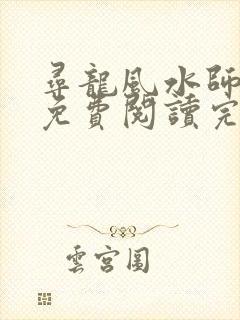 尋龍風水師
免費閱讀完
雲宮圖